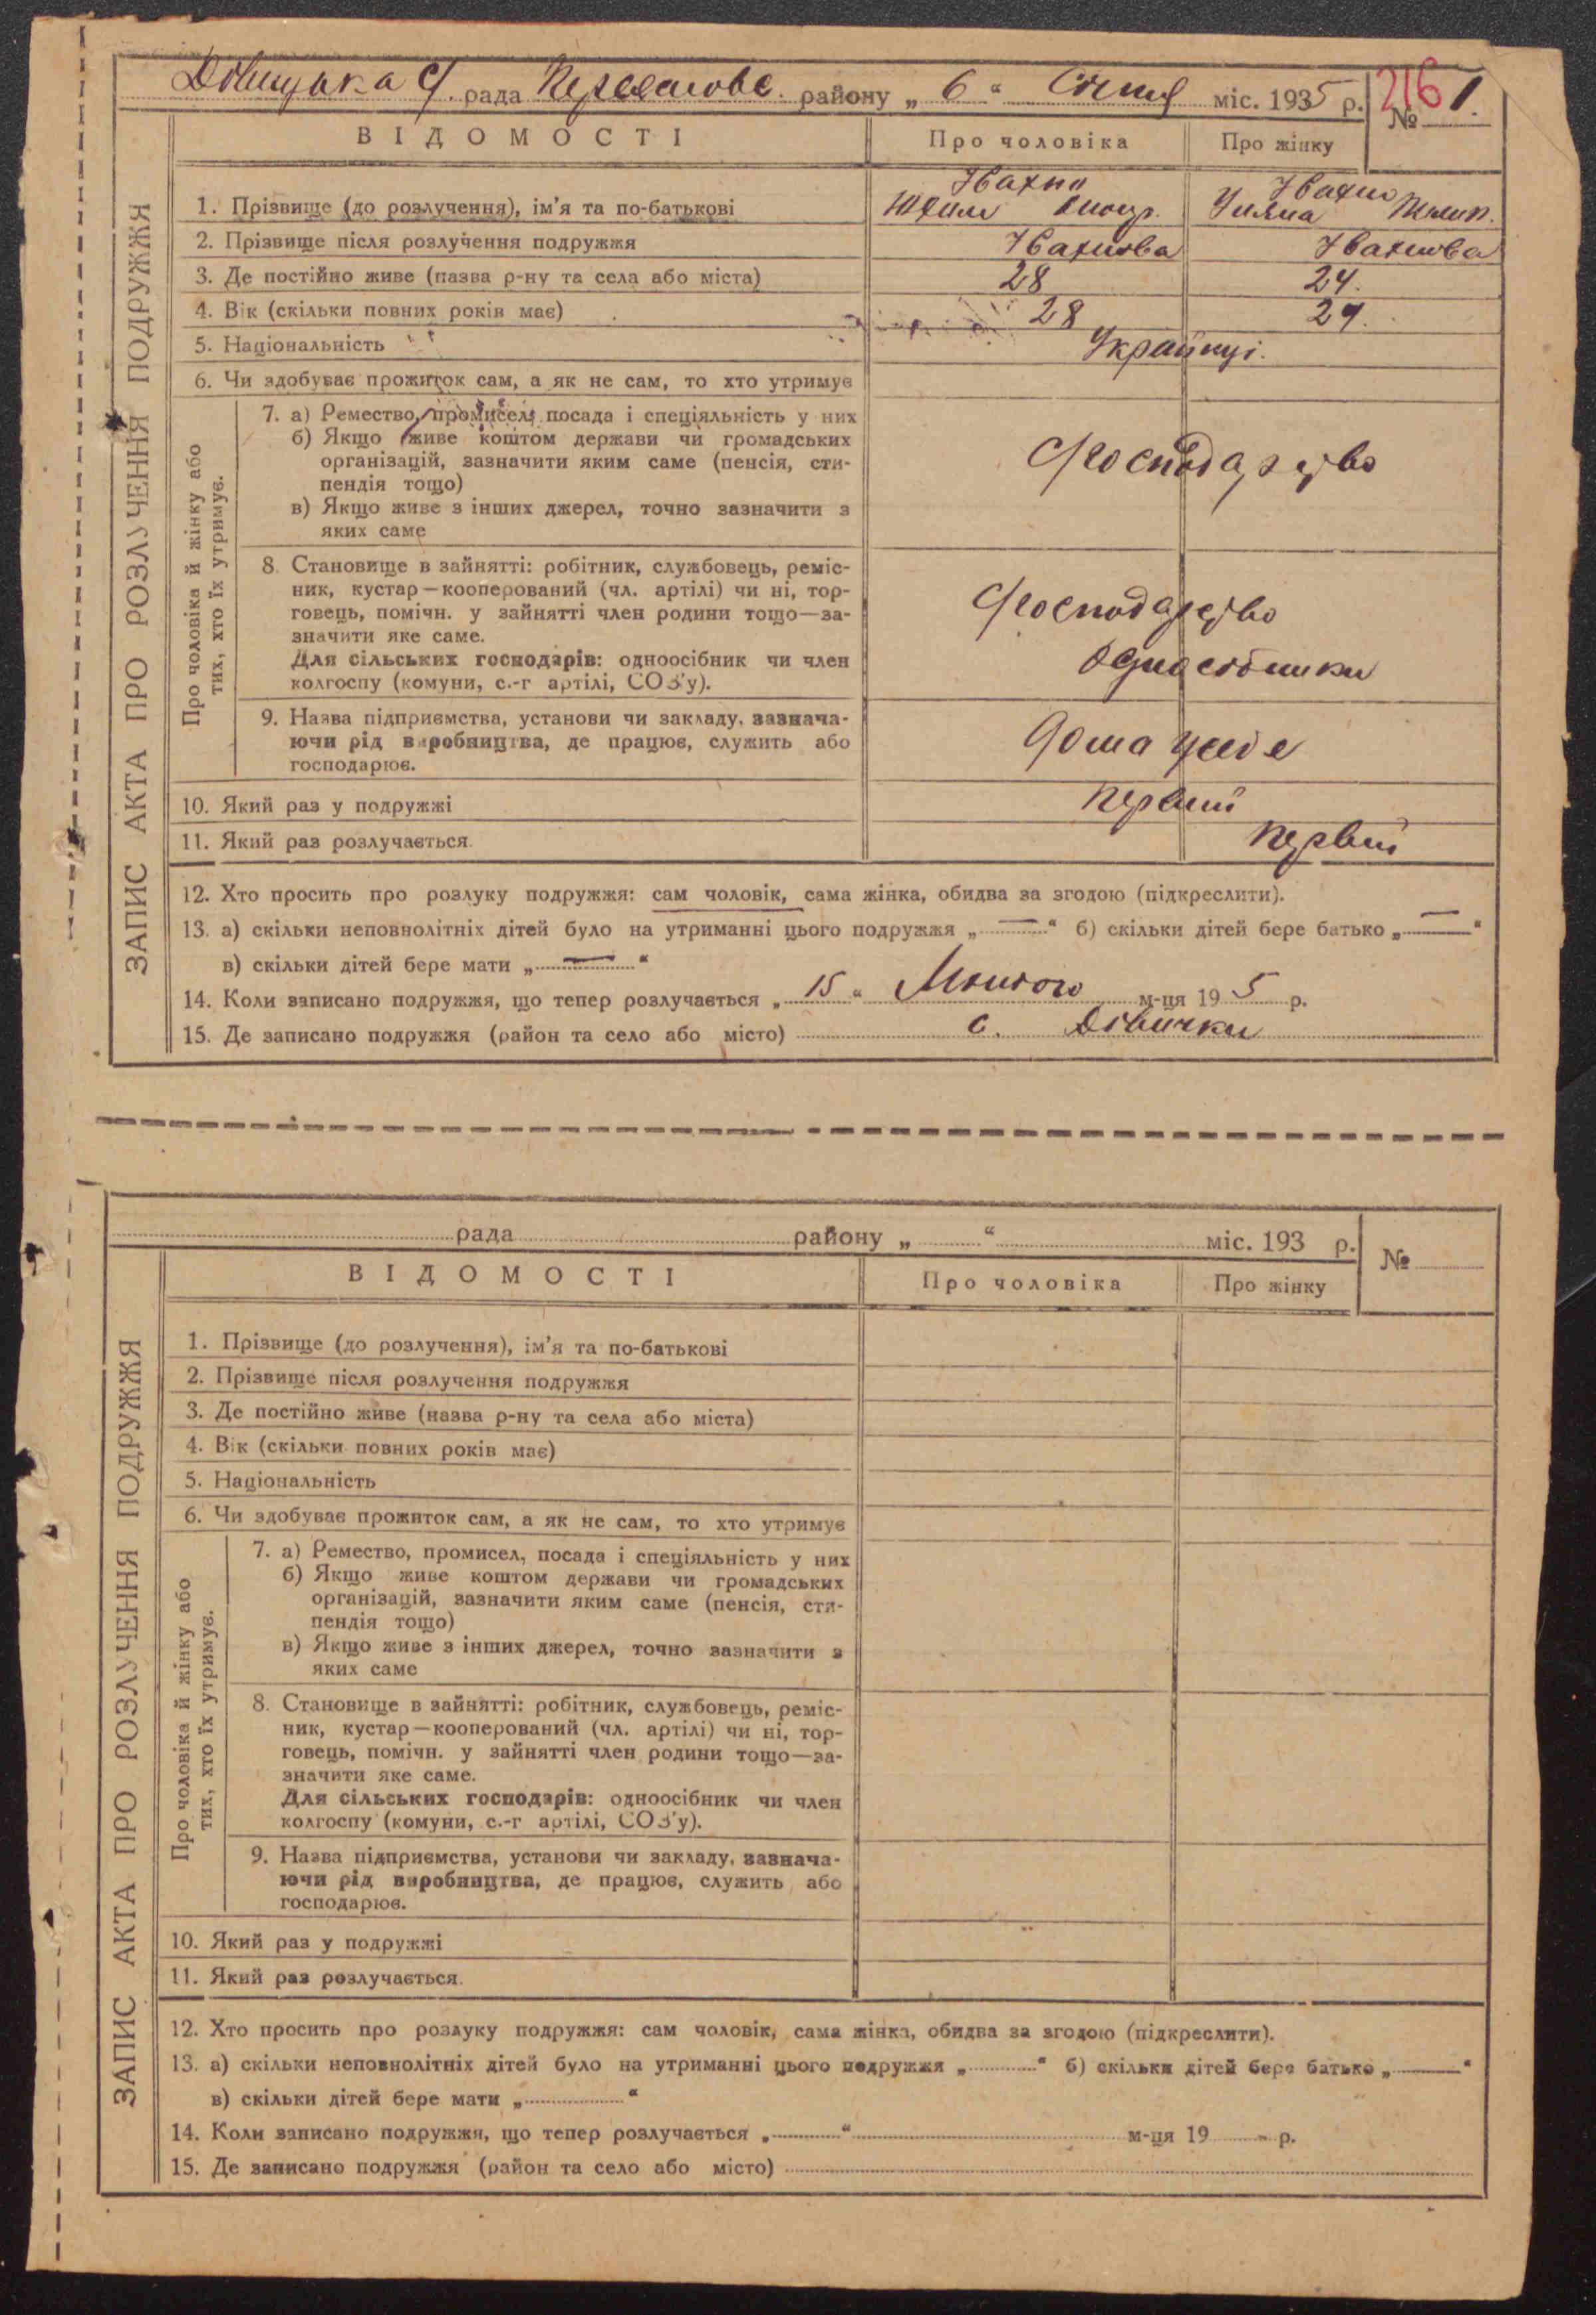 рада района „ 6 “ Січня міс. 1935 р. 216
№ 1.
ВІДОМОСТІ Про чоловіка Про жінку
ЗАПИС АКТА ПРО РОЗЛУЧЕННЯ ПОДРУЖЖЯ
1. Прізвище (до розлучення), ім’я та по-батькові
2. Прізвище після розлучення подружжя
3. Де постійно живе (назва р-ну та села або міста) 28 24.
4. Вік (скільки повних років має) 28 24.
5. Національність Українці.
6. Чи здобуває прожиток сам, а як не сам, то хто утримує
Про чоловіка й жінку або
тих, хто їх утримує.
7. а) Ремество, промисел, посада і спеціяльність у них
б) Якщо живе коштом держави чи громадських
організацій, зазначити яким саме (пенсія, сти-
пендія тощо)
в) Якщо живе з інших джерел, точно зазначити з
яких саме
8. Становище в зайнятті: робітник, службовець, реміс-
ник, кустар—кооперований (чл. артілі) чи ні, тор-
говець, помічн. у зайнятті член родини тощо—за-
значити яке саме.
Для сільських господарів: одноосібник чи член
колгоспу (комуни, с.-г артілі, СОЗ’у).
9. Назва підприємства, установи чи закладу, зазнача-
ючи рід виробництва, де працює, служить або
господарює.
дома у себе
10. Який раз у подружжі первий
11. Який раз розлучається. первий
12. Хто просить про розлуку подружжя: сам чоловік, сама жінка, обидва за згодою (підкреслити).
13. а) скільки неповнолітніх дітей було на утриманні цього подружжя „ — “ б) скільки дітей бере батько „ — “
в) скільки дітей бере мати „ — “
14. Коли записано подружжя, що тепер розлучається „ 15 “ Лютого м-ця 19 5 р.
15. Де записано подружжя (район та село або місто) с. Дівички
рада району „ “ міс. 193 р. №
ВІДОМОСТІ Про чоловіка Про жінку
ЗАПИС АКТА ПРО РОЗЛУЧЕННЯ ПОДРУЖЖЯ
1. Прізвище (до розлучення), ім’я та по-батькові
2. Прізвище після розлучення подружжя
3. Де постійно живе (назва р-ну та села або міста)
4. Вік (скільки повних років має)
5. Національність
6. Чи здобуває прожиток сам, а як не сам, то хто утримує
Про чоловіка й жінку або
тих, хто їх утримує.
7. а) Ремество, промисел, посада і спеціяльність у них
б) Якщо живе коштом держави чи громадських
організацій, зазначити яким саме (пенсія, сти-
пендія тощо)
в) Якщо живе з інших джерел, точно зазначити з
яких саме
8. Становище в зайнятті: робітник, службовець, реміс-
ник, кустар—кооперований (чл. артілі) чи ні, тор-
говець, помічн. у зайнятті член родини тощо—за-
значити яке саме.
Для сільських господарів: одноосібник чи член
колгоспу (комуни, с.-г артілі, СОЗ’у).
9. Назва підприємства, установи чи закладу, зазнача-
ючи рід виробництва, де працює, служить або
господарює.
10. Який раз у подружжі
11. Який раз розлучається.
12. Хто просить про розлуку подружжя: сам чоловік, сама жінка, обидва за згодою (підкреслити).
13. а) скільки неповнолітніх дітей було на утриманні цього подружжя „ “ б) скільки дітей бере батько „ “
в) скільки дітей бере мати „ “
14. Коли записано подружжя, що тепер розлучається „ “ м-ця 19 р.
15. Де записано подружжя (район та село або місто)